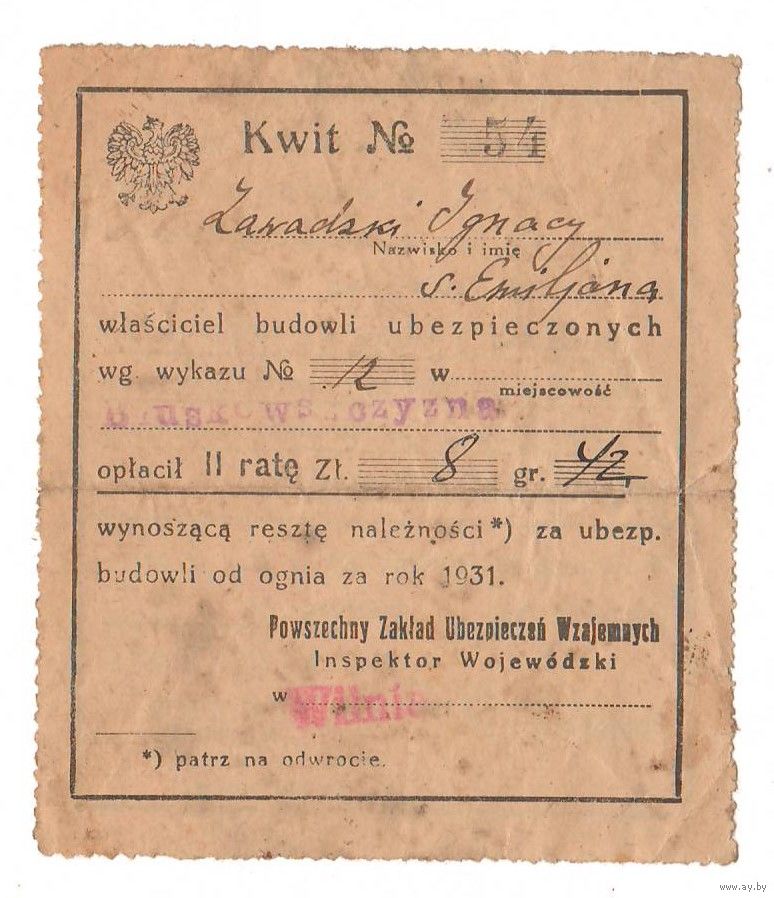 Kwit № 54
Zawadzki Ignacy
Nazwisko i imię
s. Emiljana
właściciel budowli ubezpieczonych
wg. wykazu № 12 w
miejscowość
opłacił II ratę Zł. 8 gr. 42
wynoszącą resztę należności*) za ubezp.
budowli od ognia za rok 1931.
Powszechny Zakład Ubezpieczeń Wzajemnych
Inspektor Wojewódzki
w Wilnie
*) patrz na odwrocie.
www.ay.by